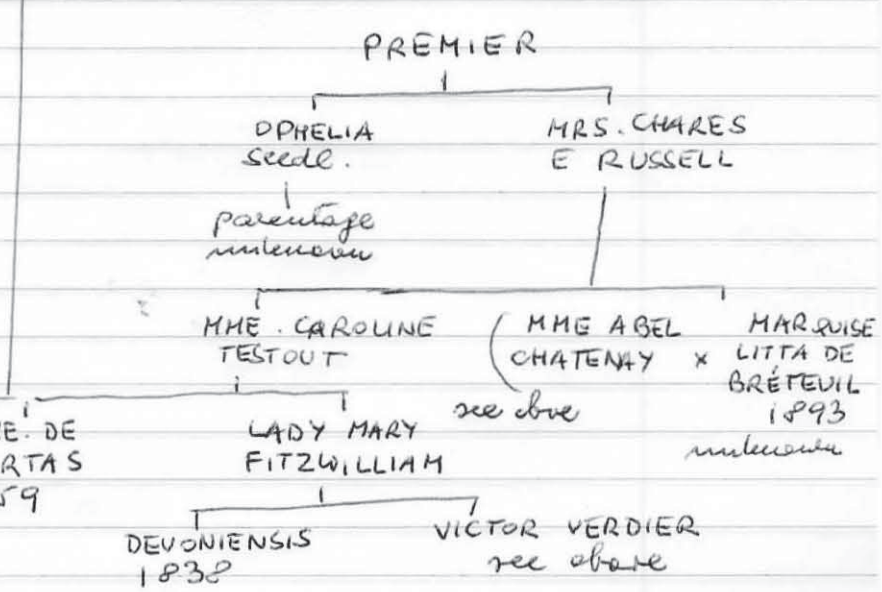 PREMIER
OPHELIA
seedl.
MRS. CHARES
E RUSSELL
parentage
unknown
MME. CAROLINE
TESTOUT
MME ABEL
CHATENAY
see abve
x
MARQUISE
LITTA DE
BRÉTEUIL
1893
unknown
E. DE
RTAS
59
LADY MARY
FITZWILLIAM
DEVONIENSIS
1838
VICTOR VERDIER
see above